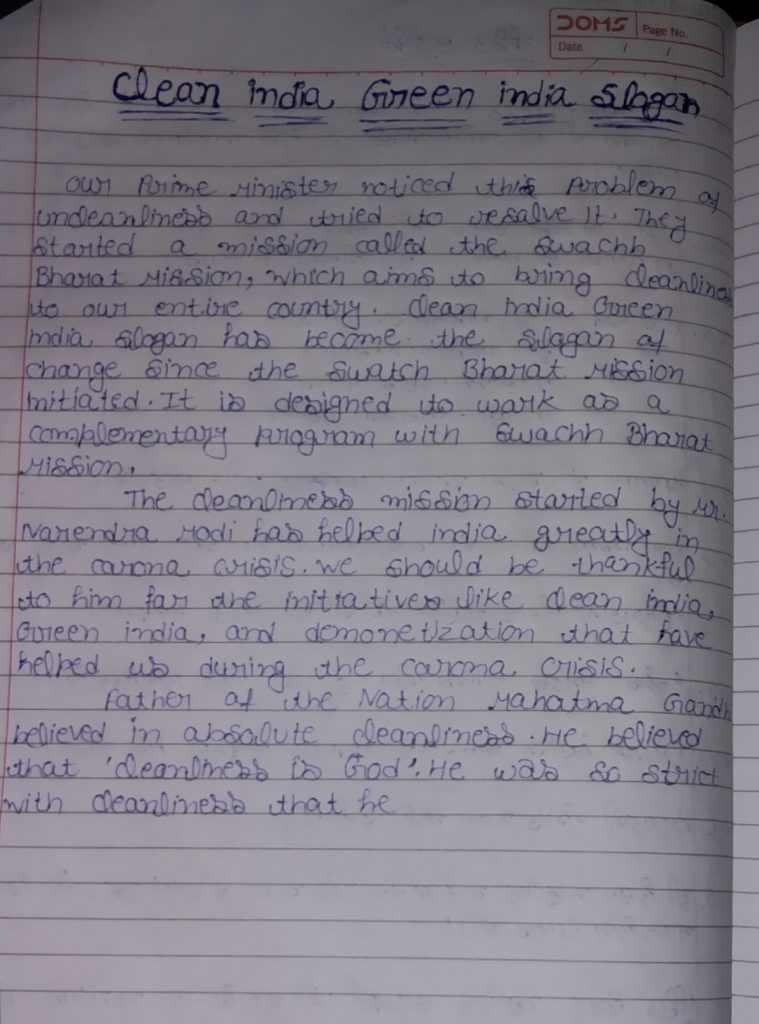 DOMS
Page No.
Date / /
Clean india Green india Slogan
Our Prime Minister noticed this problem of
uncleanliness and tried to resolve it. They
started a mission called the Swachh
Bharat Mission, which aims to bring cleanline
to our entire country. Clean india Green
india Slogan has become the Slogan of
change since the Swatch Bharat Mission
initiated. It is designed to work as a
complementary program with Swachh Bharat
Mission.
The cleanliness mission started by Mr.
Narendra Modi has helped india greatly in
the carona crisis. We should be thankful
to him for the initiatives like clean india,
Green india, and demonetization that have
helped us during the carona crisis.
Father of the Nation Mahatma Gandhi
believed in absolute cleanliness. He believed
that 'cleanliness is God'. He was so strict
with cleanliness that he